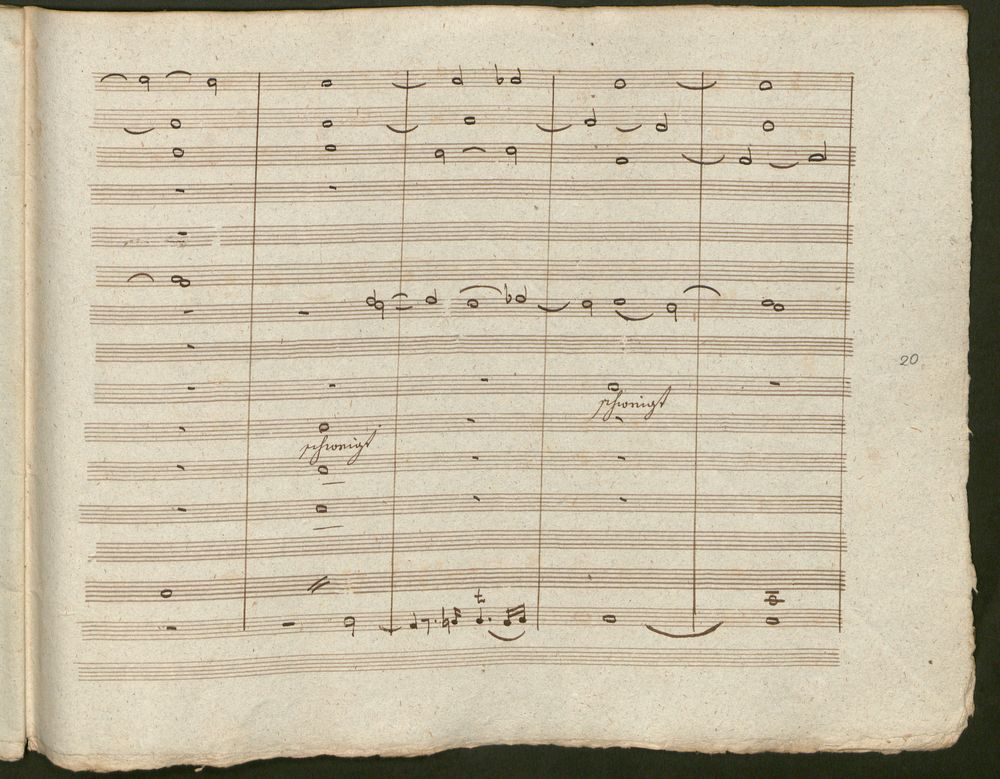 20
schweigt
schweigt